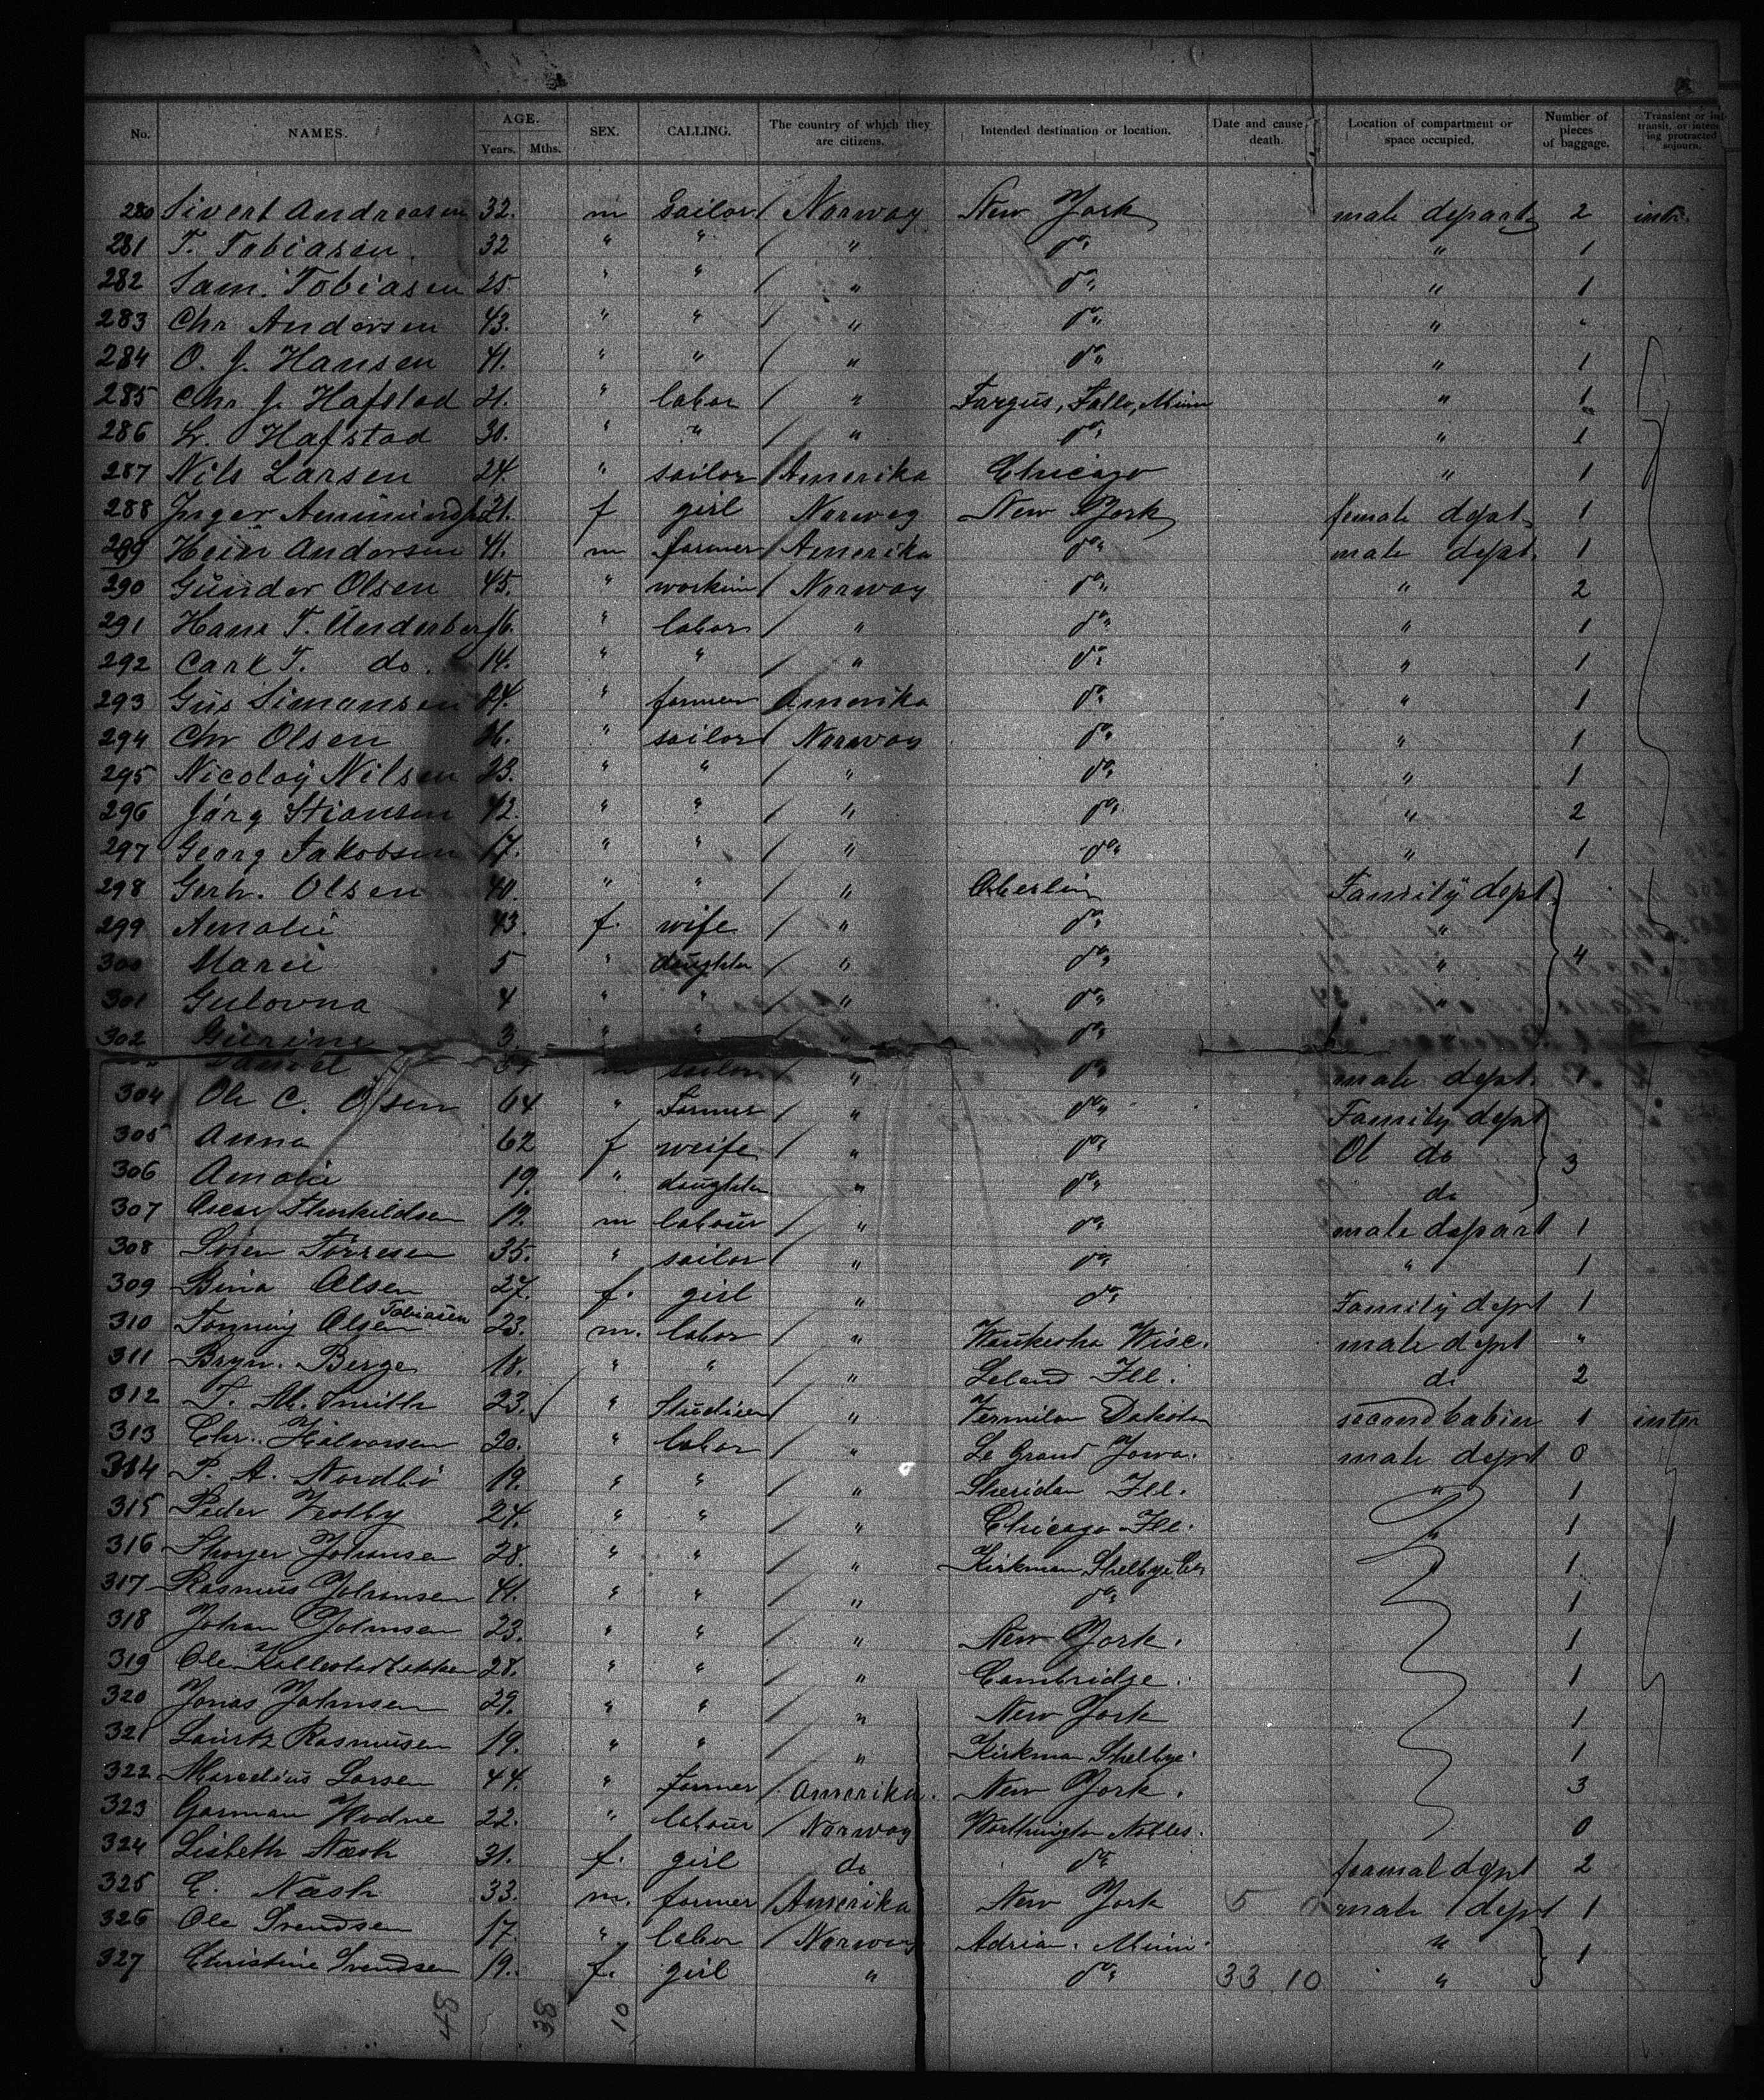 No. NAMES. AGE. Years. Mths. SEX. CALLING. The country of which they are citizens. Intended destination or location. Date and cause death. Location of compartment or space occupied. Number of pieces of baggage. Transient or in transit, or intending protracted sojourn.
280 Sivert Andreasen 32. m Sailor / Norway New York male depart. 2
281 T. Tobiasen 32 " " / " do " 1
282 Sam. Tobiasen 25 " " / " do " 1
283 Chr Andersen 43. " " / " do " "
284 O. J. Hansen 41. " " / " do " 1
285 Chr J. Hafstad 21. " labor / " Fargus, Falls, Minn " 1
286 L. Hafstad 30. " " / " do " 1
287 Nils Larsen 24. " sailor / Amerika Chicago " 1
288 Inger 21. f girl Norway New York female dept. 1
289 Hein Andersen 41. m farmer / Amerika do male dept. 1
290 Gunder Olsen 45. " / Norway do " 2
291 Hans T. Underberg 16. " labor / " do " 1
292 Carl T. do. 14. " " / " do " 1
293 Gus Simonsen 24. " farmer Amerika do " 1
294 Chr Olsen 26. " sailor / Norway do " 1
295 Nicolay Nilsen 23. " " / " do " 1
296 Jörg Stiansen 42. " " / " do " 2
297 Georg Jakobsen 17. " " / " do " 1
298 Gerh. Olsen 40. " " / " Oberlin Family dept.
299 Amalie 43. f. wife / " do "
300 Marie 5 " daughter / " do " 4
301 Gulovna 4 " " / " do "
302 3 " " " do
m sailor " do male dept. 1
304 Ole C. Olsen 64 " Farmer / " do Family dept
305 Anna 62 f weife / " do do 3
306 Amalie 19. " daughter " do do
307 Oscar Thorkildsen 19. m labour / " do male depart 1
308 Sören Törresen 35. " sailor / " do " 1
309 Bina Olsen 27. f. girl " do Family dept 1
310 Tönning Olsen Tobiasen 23. m. labor / " Waukesha Wisc. male dept "
311 Bryn. Berge 18. " " / " Leland Ill. do 2
312 T. M. Smith 23. " / " Vermilon Dakota second Cabin 1
313 Chr. Halvorsen 20. " labor / " Le Grand Jowa. male dept 0
314 P. A. Nordbö 19. " " / " Sheridan Ill. " 1
315 Peder 24. " " / " Chicago Ill. " 1
316 Johansen 28. " " / " Kirkman Shelbye Co 1
317 Rasmus Johansen 41. " " / " do 1
318 Johan Johnsen 23. " " / " New York. 1
319 Ole 28. " " / " Cambridge. 1
320 Jonas Johnsen 29. " " / " New York 1
321 Lauritz Rasmusen 19. " " / " Kirkman Shelbye. 1
322 Marelius Larsen 44. " farmer / Amerika. New York. 3
323 Gorman Hodne 22. " labour / Norway Worthington Nobles. 0
324 Lisbeth Næsh 31. f. girl do do femal dept 2
325 E. Næsh 33. m. farmer / Amerika New York male dept 1
326 Ole Svendsen 17. " labor / Norway Adrian. Minn. "
327 Christine Svendsen 19. f. girl " do 33 10 " 1
10